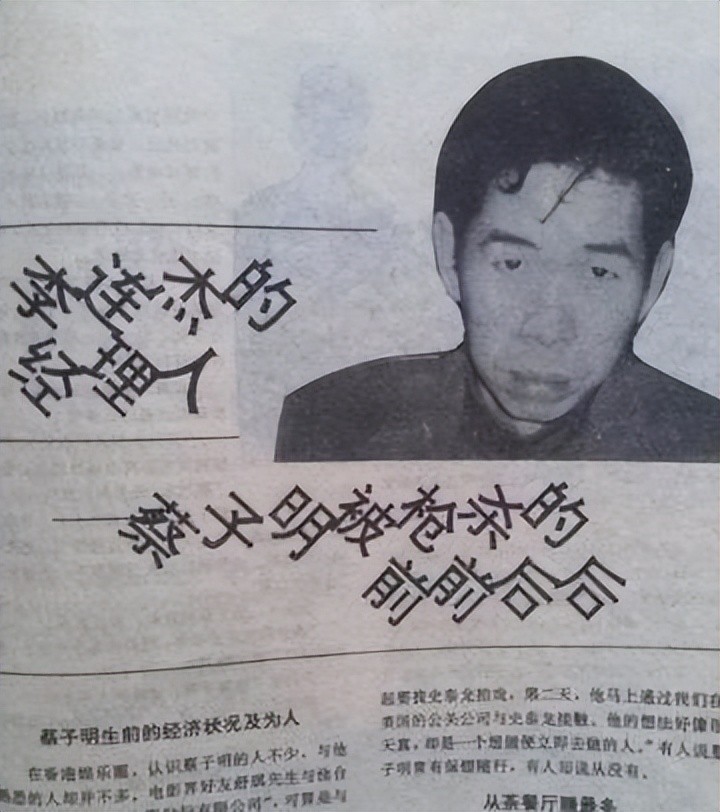 李连杰的
经理人
——蔡子明被枪杀的
前前后后
蔡子明生前的经济状况及为人
在香港娱乐圈，认识蔡子明的人不少，与他
熟悉的人却并不多，电影界好友
有限公司”，可算是与
起要找史泰龙拍戏，第二天，他马上通过我们在
美国的公关公司与史泰龙接触。他的想法好像
天真，却是一个想做便立即去做的人。”有人说
子明常有保镖随行，有人却说从没有。
从茶餐厅